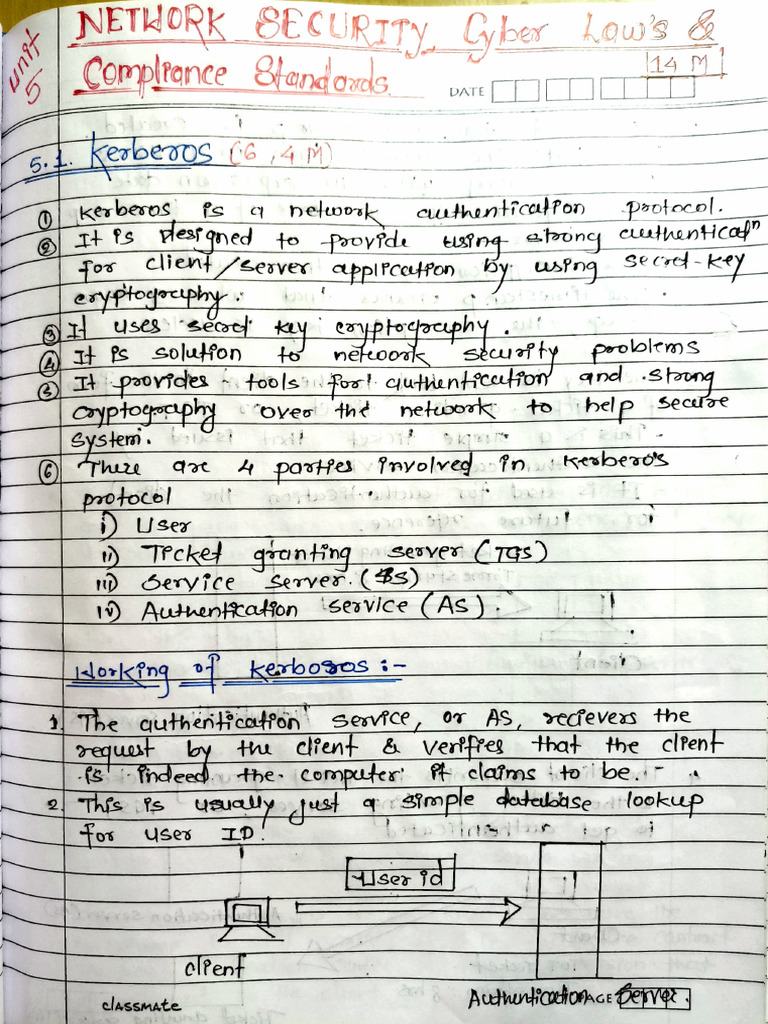 unit 5
NETWORK SECURITY, Cyber Law's &
Compliance Standards.
14 M
DATE
5.1. Kerberos (6, 4 M)
① Kerberos is a network authentication protocol.
② It is designed to provide using strong authenticatn
for client/server application by using secret-key
cryptography.
③ It uses secret key cryptography.
④ It is solution to network security problems
⑤ It provides tools for authentication and strong
cryptography over the network to help secure
system.
⑥ There are 4 parties involved in Kerberos
protocol
i) User
ii) Ticket granting server (TGS)
iii) Service server. (SS)
iv) Authentication service (AS).
Working of Kerboros :-
1. The authentication service, or AS, recievers the
request by the client & verifies that the client
is indeed the computer it claims to be.
2. This is usually just a simple database lookup
for user ID.
User id
client
Authentication Server.
classmate
PAGE